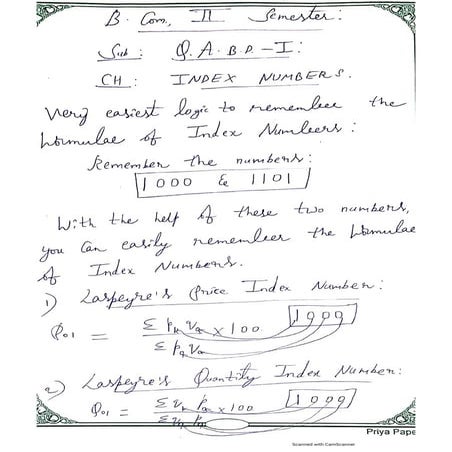 B. Com, II Semester:
Sub: Q.A.B.D-I:
CH: INDEX NUMBERS.
Very easiest logic to remember the
formulae of Index Numbers:
Remember the numbers:
1000 & 1101
With the help of these two numbers,
you can easily remember the formulae
of Index Numbers.
1) Laspeyre's Price Index Number:
P01 = Σ p1 q0 / Σ p0 q0 × 100 1000
2) Laspeyre's Quantity Index Number:
Q01 = Σ q1 p0 / Σ q0 p0 × 100 1000
Priya Pape
Scanned with CamScanner